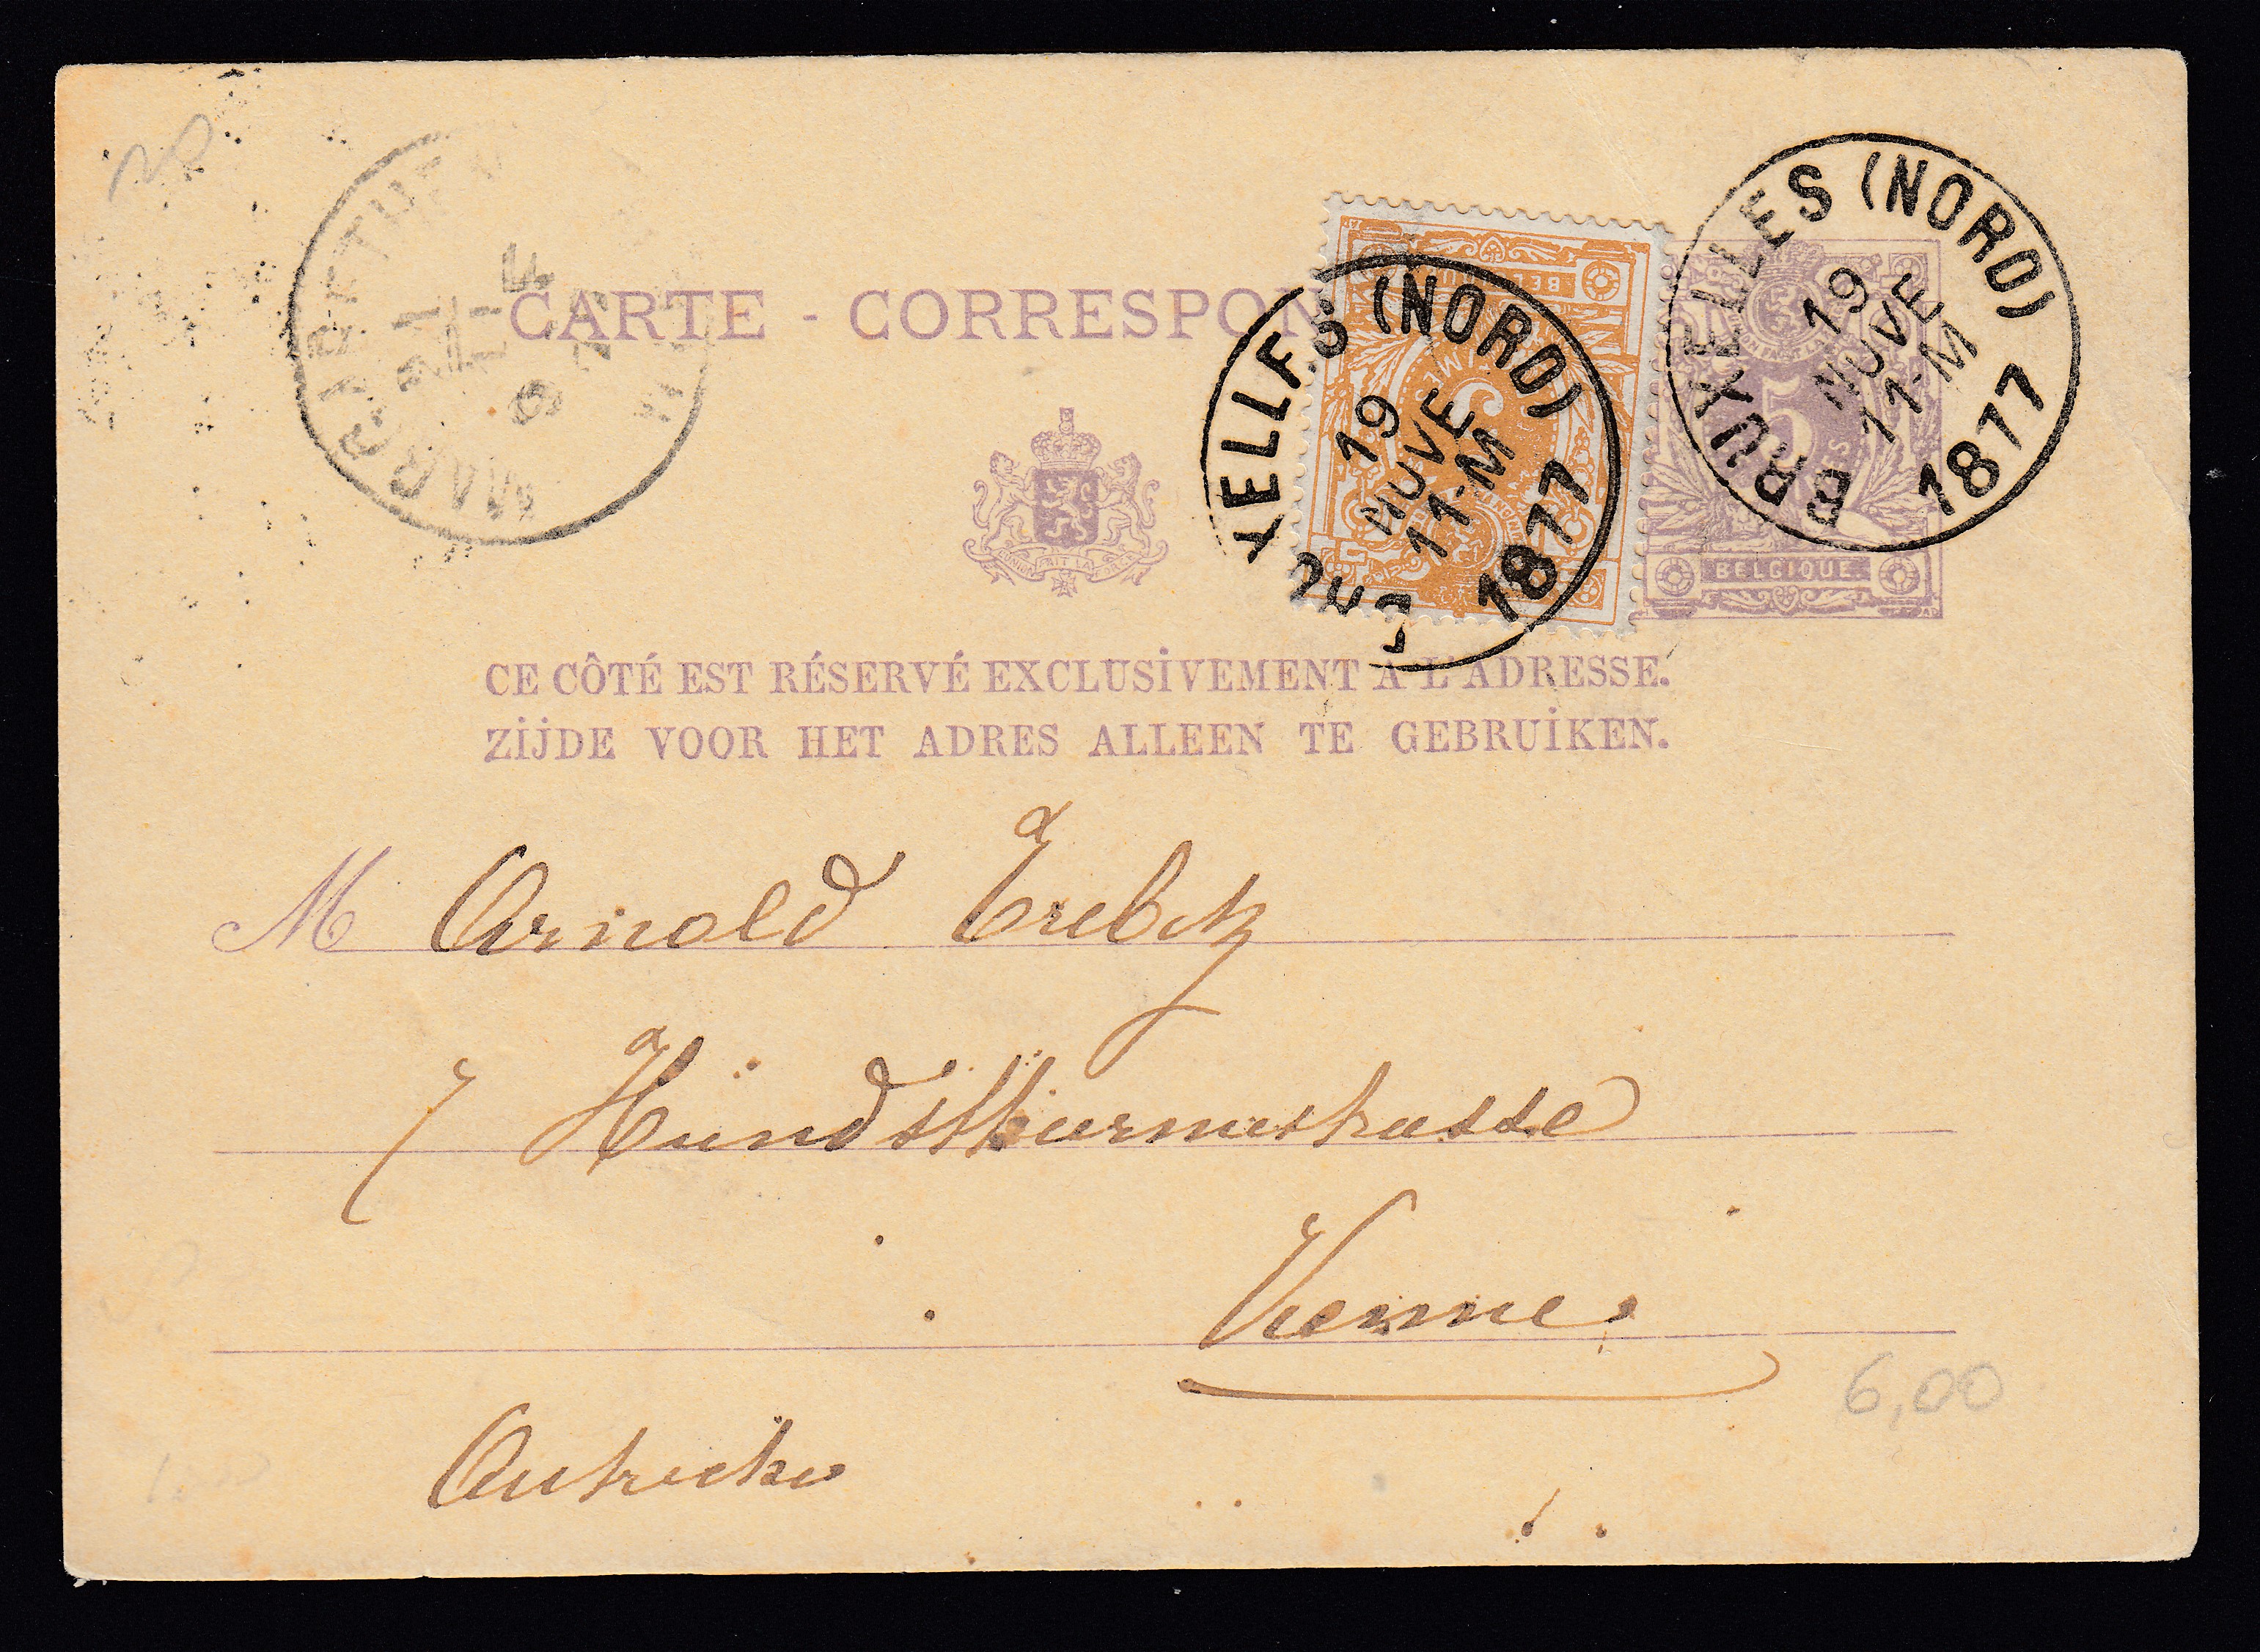 BRUXELLES (NORD)
19
NOVE
11-M
1877
XELLES (NORD)
19
NOVE
11-M
1877
BELGIQUE
5
CARTE - CORRESPON
CE CÔTÉ EST RÉSERVÉ EXCLUSIVEMENT A L'ADRESSE.
ZIJDE VOOR HET ADRES ALLEEN TE GEBRUIKEN.
M Arnold Trebitz
7 Hundsthurmerstrasse
Vienne
Autriche
6,00